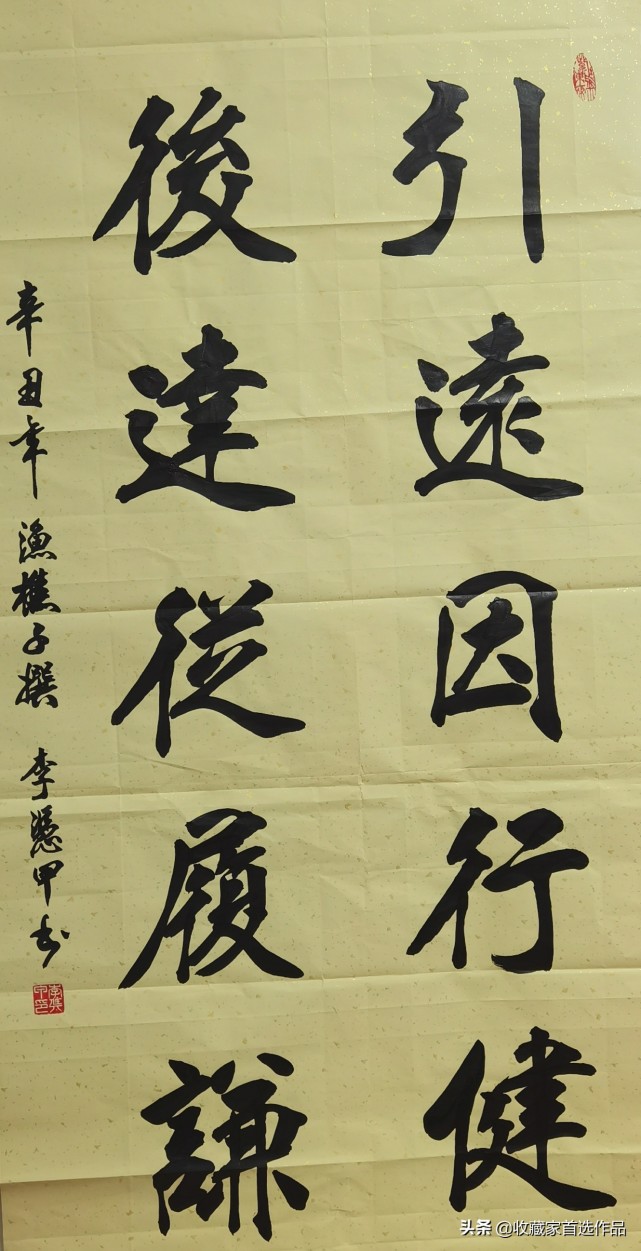 引遠因行健
後達從履謙
辛丑年 漁樵子撰 李憑甲书
头条 @收藏家首选作品